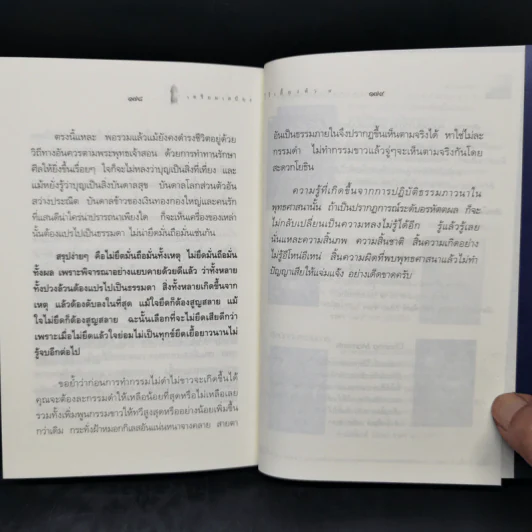 ๑๗๘
ตรงนี้แหละ พอรวมแล้วแม้ยังคงดำรงชีวิตอยู่ด้วย
วิถีทางอันควรตามพระพุทธเจ้าสอน ด้วยการทำทานรักษา
ศีลให้ยิ่งขึ้นเรื่อยๆ ใจก็จะไม่หลงว่าบุญเป็นสิ่งที่เที่ยง และ
แม้ยังรู้ว่าบุญเป็นสิ่งบันดาลสุข บันดาลโลกส่วนตัวอัน
สว่างประณีต บันดาลข้าวของเงินทองกองใหญ่และคนรัก
ที่แสนดีน่าใคร่น่าปรารถนาเพียงใด ก็จะเห็นเครื่องของเหล่า
นั้นต้องแปรไปเป็นธรรมดา ไม่น่ายึดมั่นถือมั่นเช่นกัน
สรุปง่ายๆ คือไม่ยึดมั่นถือมั่นทั้งเหตุ ไม่ยึดมั่นถือมั่น
ทั้งผล เพราะพิจารณาอย่างแยบคายด้วยดีแล้ว ว่าทั้งหลาย
ทั้งปวงล้วนต้องแปรไปเป็นธรรมดา สิ่งทั้งหลายเกิดขึ้นจาก
เหตุ แล้วต้องดับลงในที่สุด แม้ใจยึดก็ต้องสูญสลาย แม้
ใจไม่ยึดก็ต้องสูญสลาย ฉะนั้นเลือกที่จะไม่ยึดเสียดีกว่า
เพราะเมื่อไม่ยึดแล้วใจย่อมไม่เป็นทุกข์ยืดเยื้อยาวนานไม่
รู้จบอีกต่อไป
ขอย้ำว่าก่อนการทำกรรมไม่ดำไม่ขาวจะเกิดขึ้นได้
คุณจะต้องละกรรมดำให้เหลือน้อยที่สุดหรือไม่เหลือเลย
รวมทั้งเพิ่มพูนกรรมขาวให้ทวีสูงสุดหรืออย่างน้อยเพิ่มขึ้น
กว่าเดิม กระทั่งฝ้าหมอกกิเลสอันแน่นหนาจางคลาย สายตา
๑๗๙
อันเป็นธรรมภายในจึงปรากฏขึ้นเห็นตามจริงได้ หาใช่ไม่ละ
กรรมดำ ไม่ทำกรรมขาวแล้วจู่ๆจะเห็นตามจริงกันโดย
สะดวกโยธิน
ความรู้ที่เกิดขึ้นจากการปฏิบัติธรรมภาวนาใน
พุทธศาสนานั้น ถ้าเป็นปรากฏการณ์ระดับอรหัตตผล ก็จะ
ไม่กลับเปลี่ยนเป็นความหลงไม่รู้ได้อีก รู้แล้วรู้เลย
นั่นแหละความสิ้นภพ ความสิ้นชาติ สิ้นความเกิดอย่าง
ไม่รู้อีโหน่อีเหน่ สิ้นความผิดที่พบพุทธศาสนาแล้วไม่ทำ
ปัญญาเสียให้แจ่มแจ้ง อย่างเด็ดขาดครับ